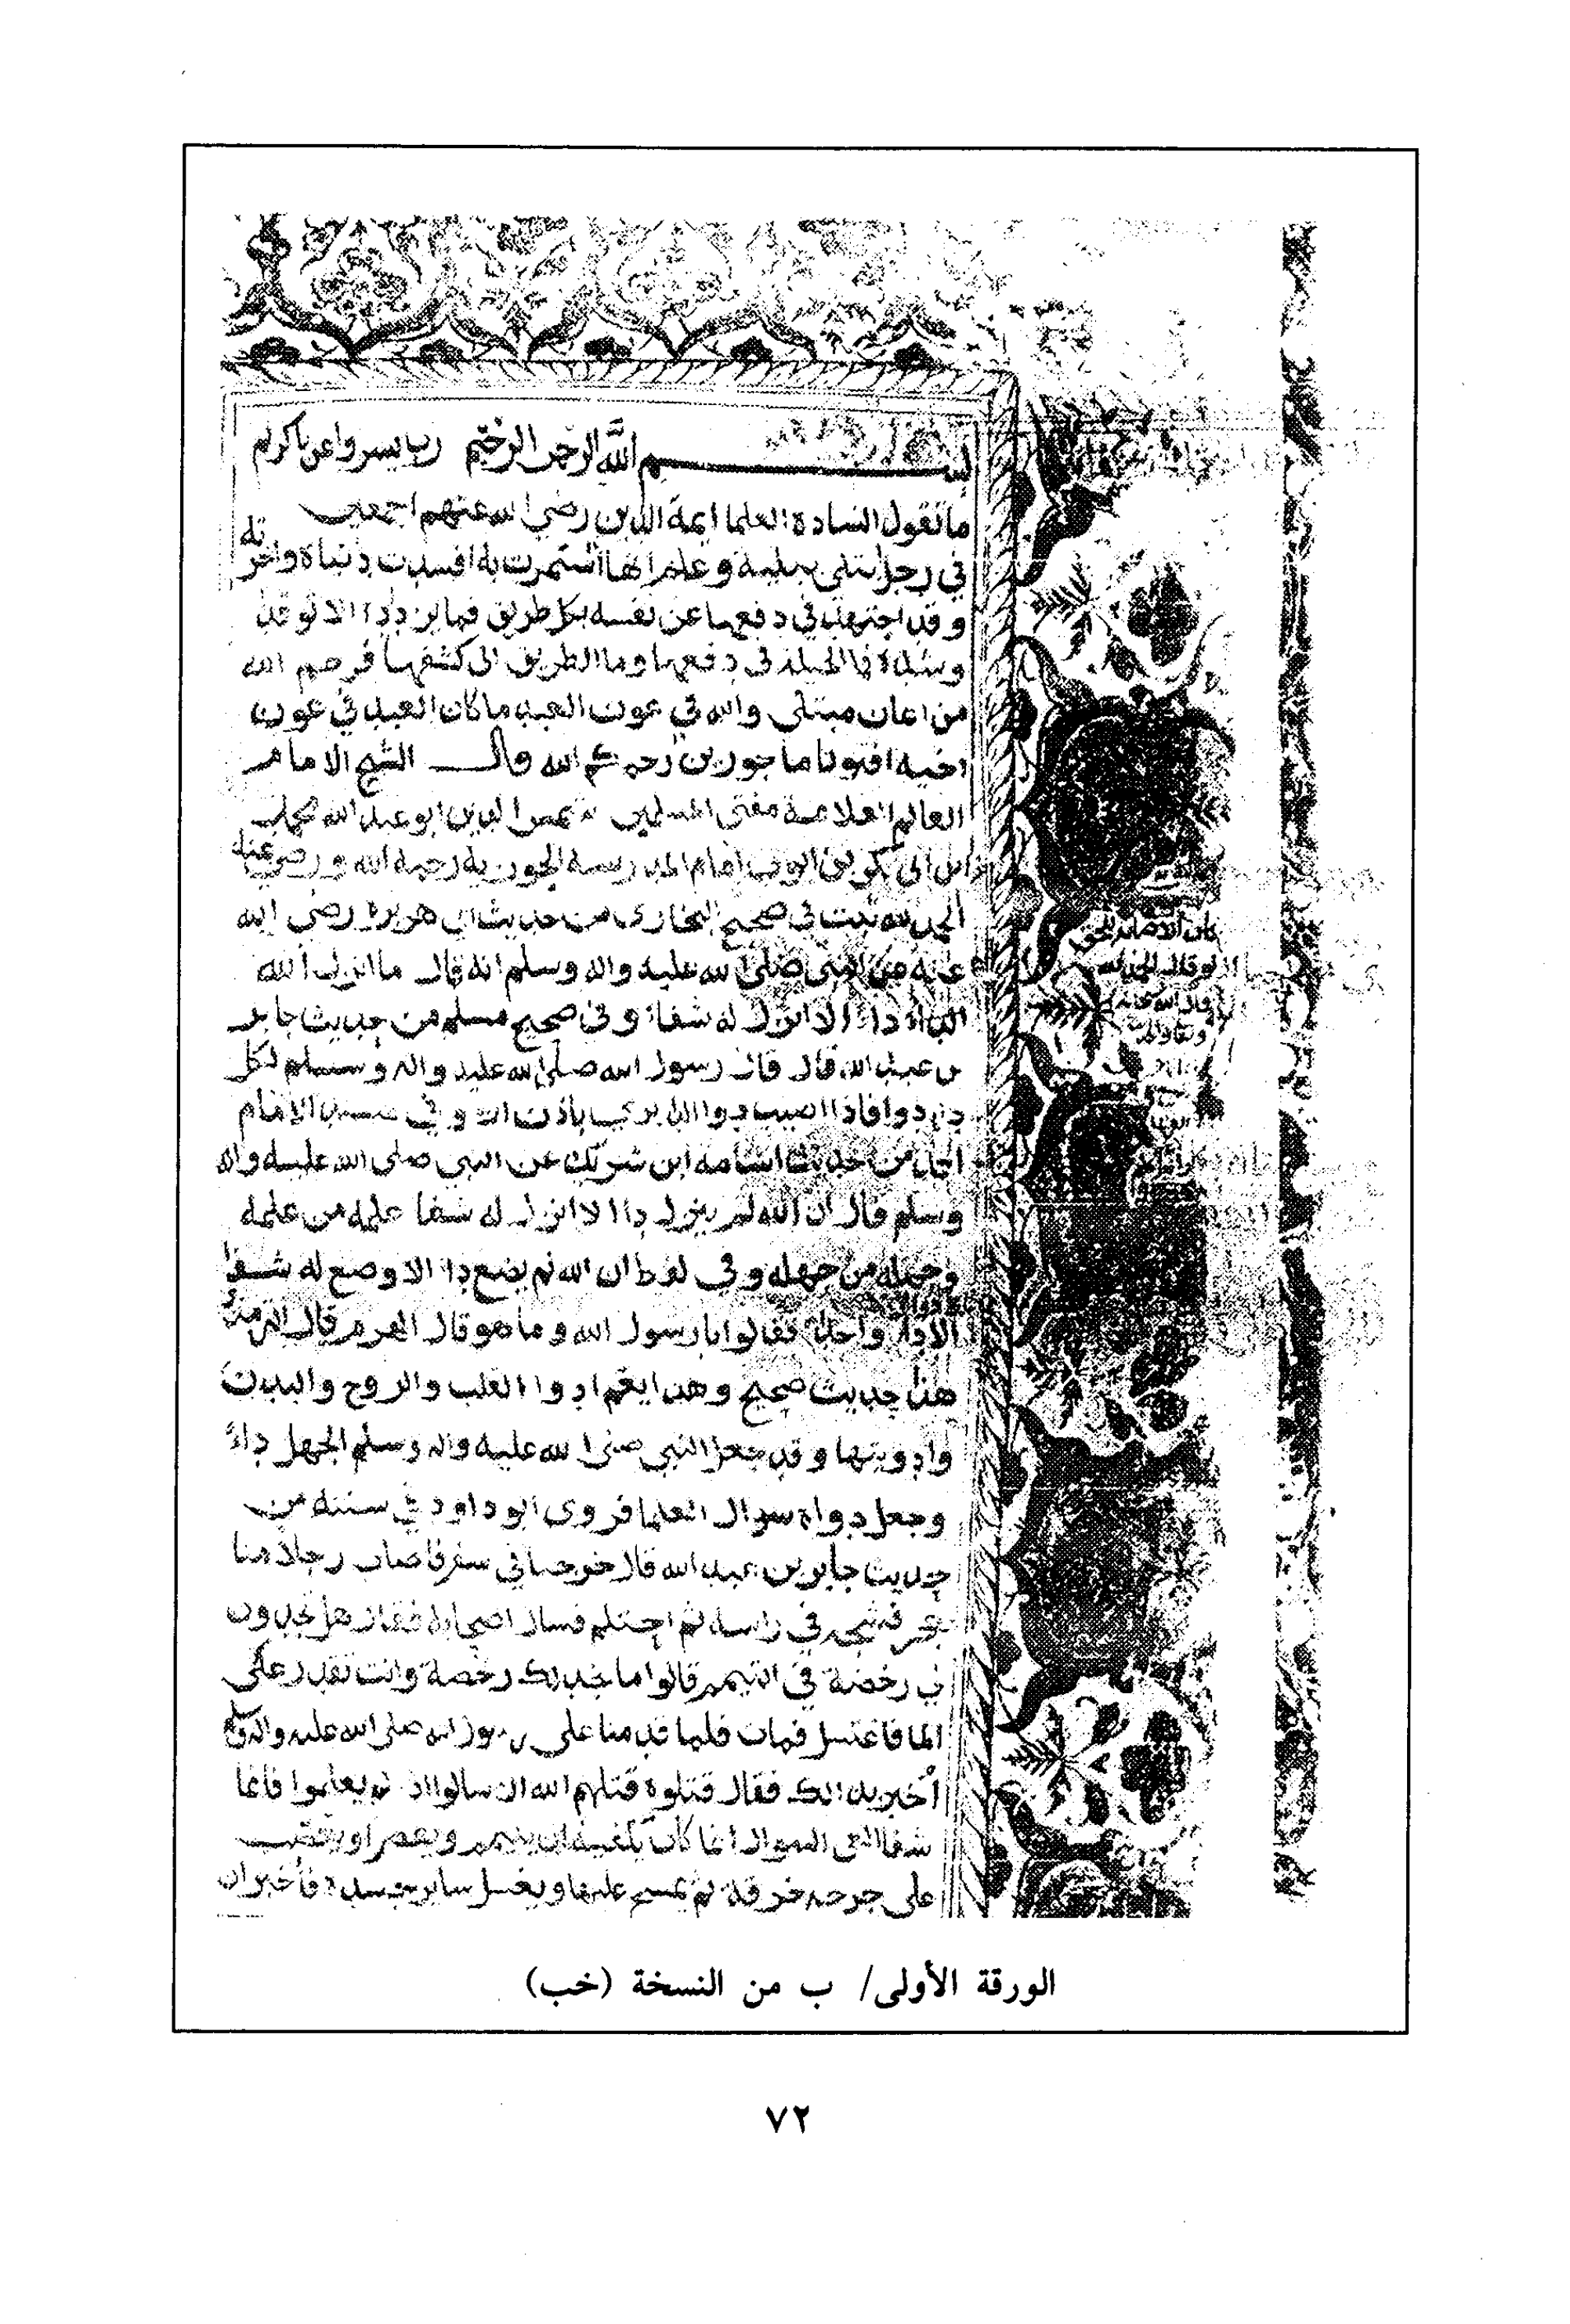 بسم الله الرحمن الرحيم رب يسر واعن ياكريم
ما تقول السادة العلما ايمة الدين رضي الله عنهم اجمعين
في رجل ابتلي ببلية وعلم انها استمرت به افسدت دنياه واخرته
وقد اجتهد في دفعها عن نفسه بكل طريق فما يزداد الا توقدا
وشدة فما الحيلة في دفعها وما الطريق الى كشفها فرحم الله
من اعان مبتلى والله في عون العبد ما كان العبد في عون
اخيه افتونا ماجورين رحمكم الله قال الشيخ الامام
العالم العلامة مفتى المسلمين شمس الدين ابو عبد الله محمد
ابن ابى بكر بن ايوب امام المدرسة الجوزية رحمه الله ورضي عنه
الحمد لله ثبت في صحيح البخاري من حديث ابي هريرة رضى الله
عنه عن النبي صلى الله عليه واله وسلم انه قال ما انزل الله
داء الا انزل له شفاء وفى صحيح مسلم من حديث جابر
بن عبد الله قال قال رسول الله صلى الله عليه واله وسلم لكل
داء دوا فاذا اصيب دوا الداء برى باذن الله وفي مسند الامام
احمد من حديث اسامة ابن شريك عن النبي صلى الله عليه واله
وسلم قال ان الله لم ينزل داا الا انزل له شفا علمه من علمه
وجهله من جهله وفي لفظ ان الله لم يضع داا الا وضع له شفا
الا داء واحدا فقالوا يا رسول الله وما هو قال الهرم قال الترمذي
هذا حديث صحيح وهذا يعم ادوا القلب والروح والبدن
وادويتها وقد جعل النبي صلى الله عليه واله وسلم الجهل داء
وجعل دواه سوال العلما فروى ابو داود في سننه من
حديث جابر بن عبد الله قال خرجنا في سفر فاصاب رجلا منا
حجر فشجه في راسه ثم احتلم فسال اصحابه فقال هل تجدون
لي رخصة في التيمم قالوا ما نجد لك رخصة وانت تقدر على
الما فاغتسل فمات فلما قدمنا على رسول الله صلى الله عليه واله وسلم
أخبر بذلك فقال قتلوه قتلهم الله الا سالوا اذ لم يعلموا فانما
شفا العي السوال انما كان يكفيه ان يتيمم ويعصر او يعصب
على جرحه خرقة ثم يمسح عليها ويغسل ساير جسده فأخبر ان
الورقة الأولى/ ب من النسخة (خب)
٧٢